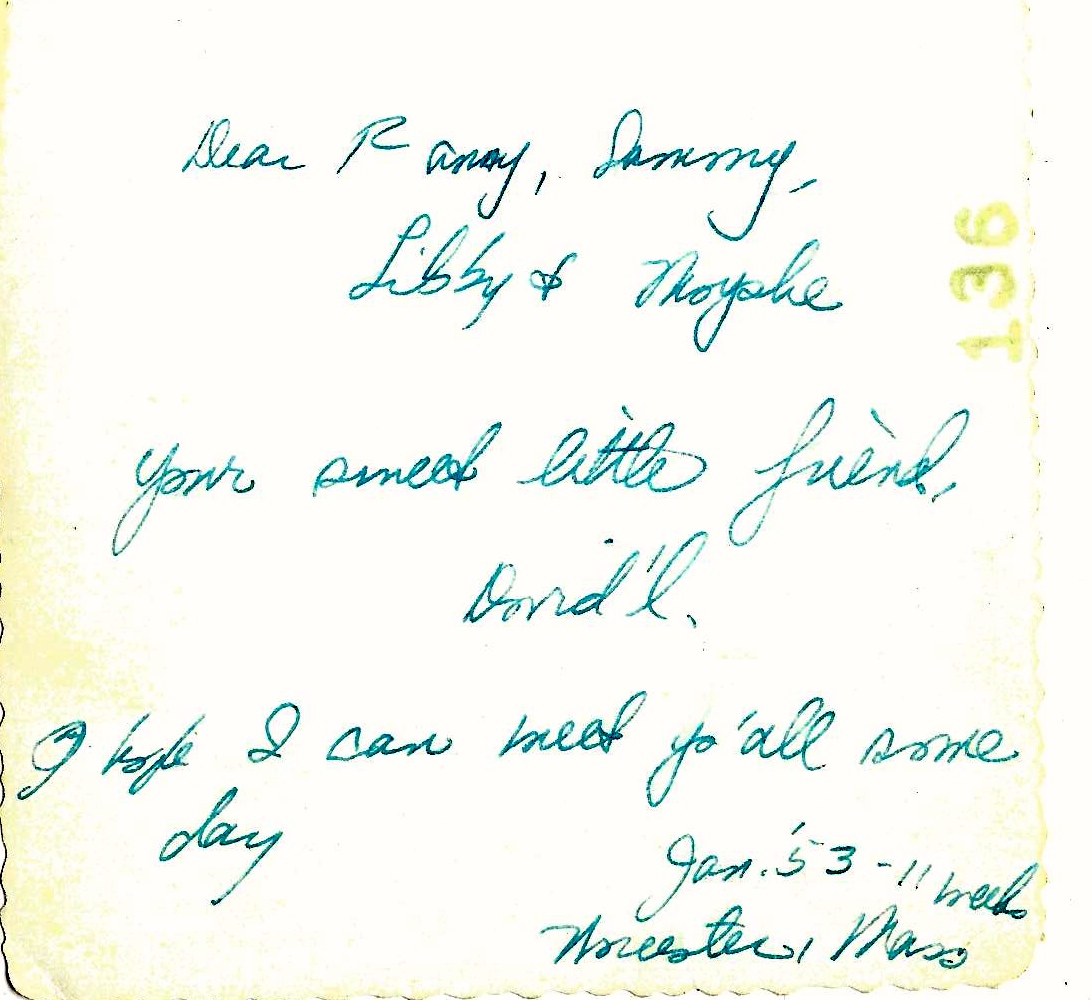 Dear Ranny, Sammy,
Libby & Moyshe
Your sweet little friend,
David'l.
I hope I can meet yo'all some
day
Jan. '53 - 11 weeks
Worcester, Mass
136